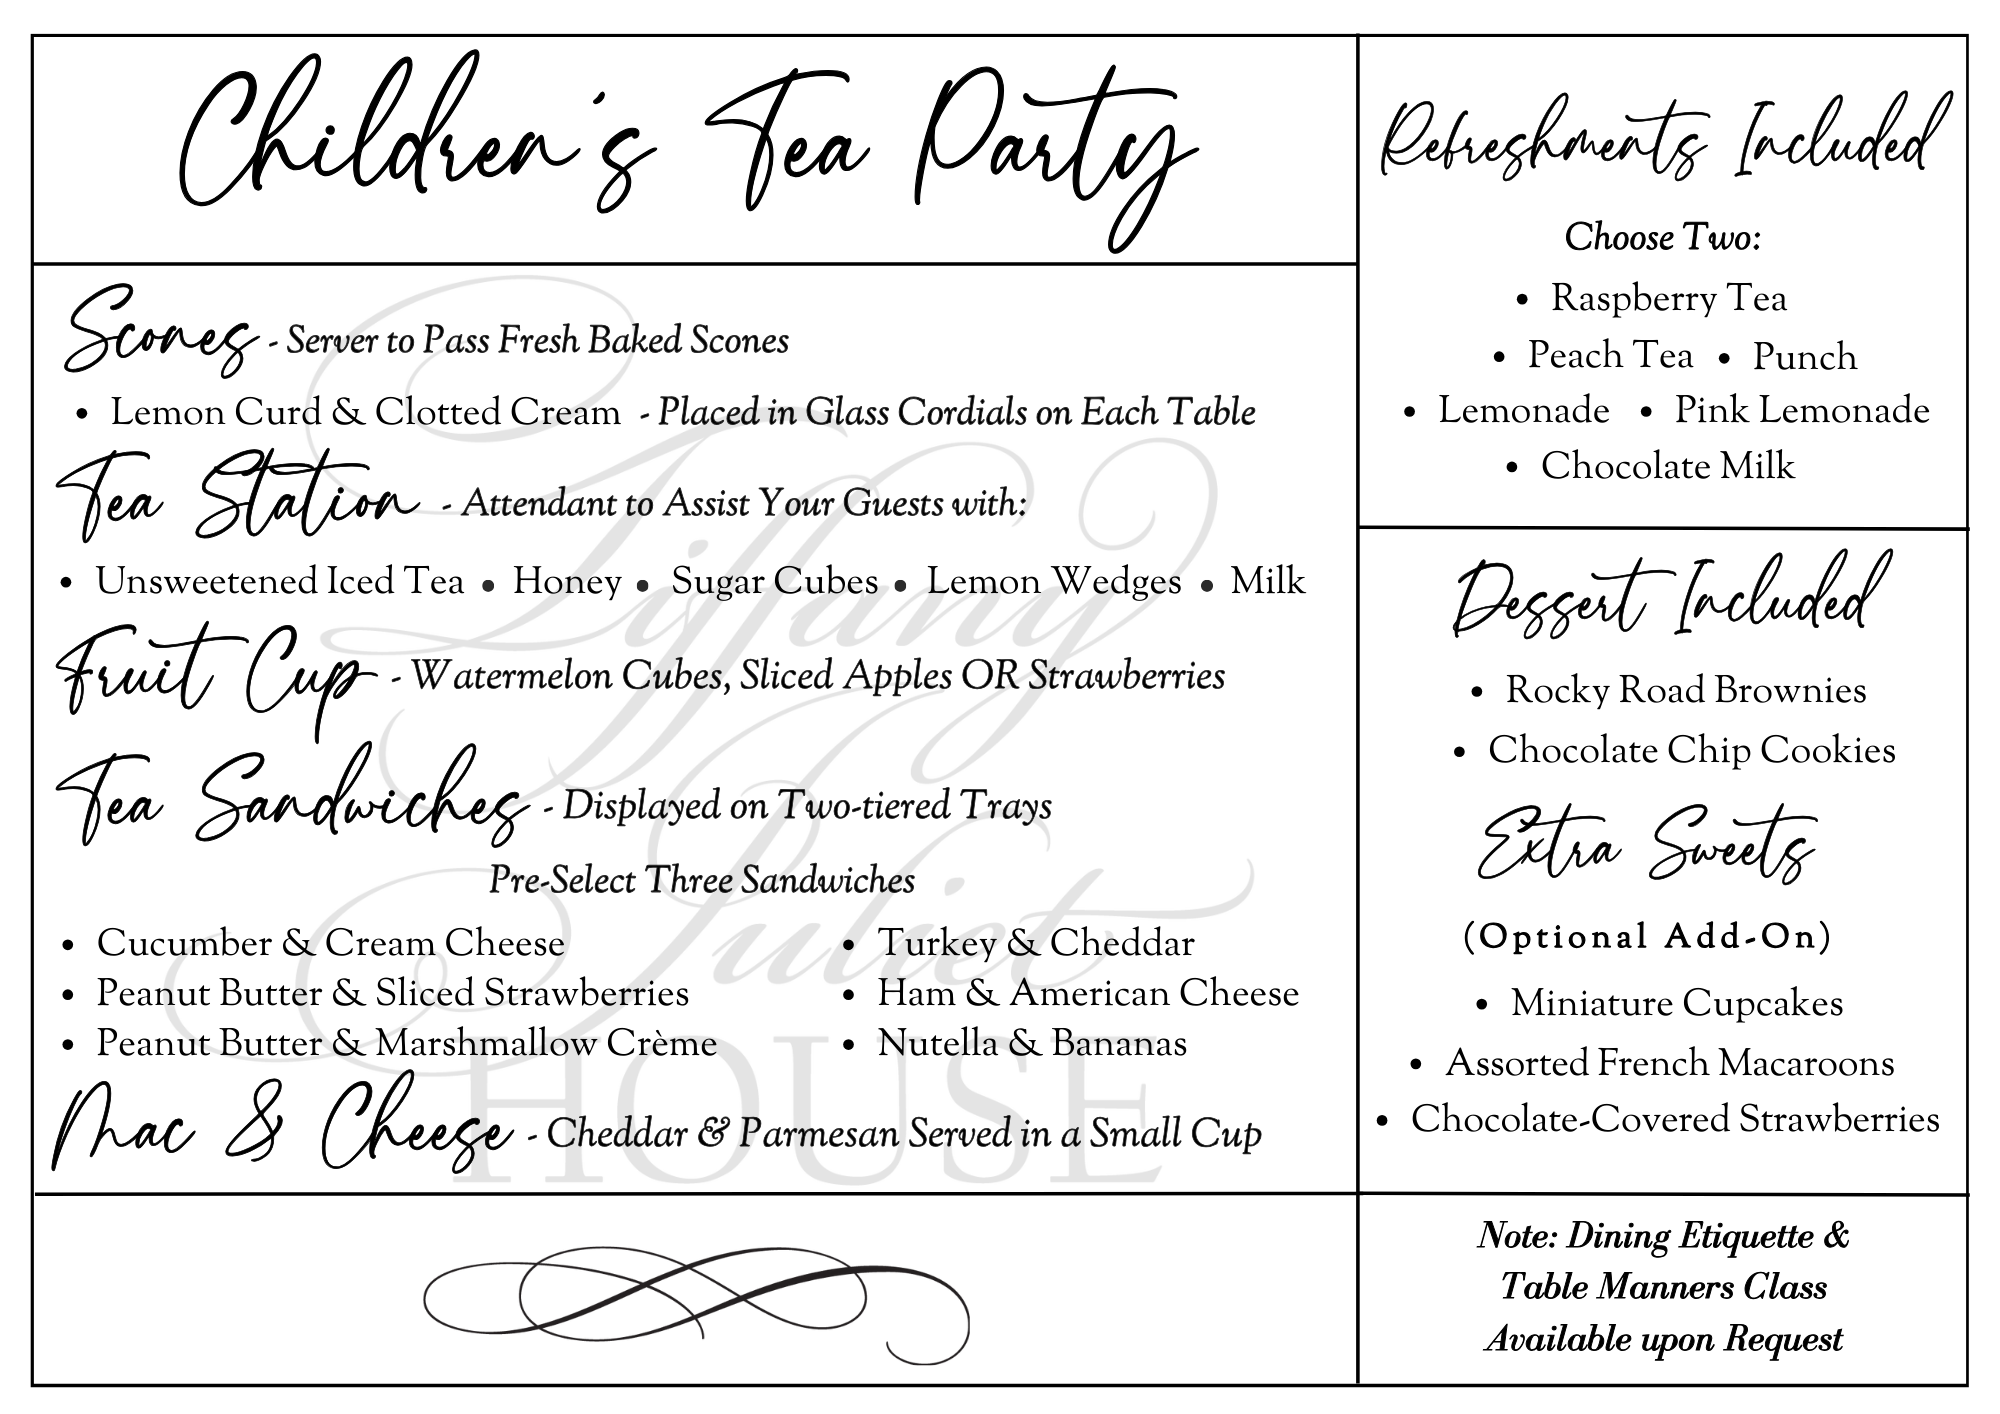 Children's Tea Party
Scones - Server to Pass Fresh Baked Scones
• Lemon Curd & Clotted Cream - Placed in Glass Cordials on Each Table
Tea Station - Attendant to Assist Your Guests with:
• Unsweetened Iced Tea • Honey • Sugar Cubes • Lemon Wedges • Milk
Fruit Cup - Watermelon Cubes, Sliced Apples OR Strawberries
Tea Sandwiches - Displayed on Two-tiered Trays
Pre-Select Three Sandwiches
• Cucumber & Cream Cheese
• Peanut Butter & Sliced Strawberries
• Peanut Butter & Marshmallow Crème
• Turkey & Cheddar
• Ham & American Cheese
• Nutella & Bananas
Mac & Cheese - Cheddar & Parmesan Served in a Small Cup
Tiffany
Juliet
HOUSE
Refreshments Included
Choose Two:
• Raspberry Tea
• Peach Tea • Punch
• Lemonade • Pink Lemonade
• Chocolate Milk
Dessert Included
• Rocky Road Brownies
• Chocolate Chip Cookies
Extra Sweets
(Optional Add-On)
• Miniature Cupcakes
• Assorted French Macaroons
• Chocolate-Covered Strawberries
Note: Dining Etiquette &
Table Manners Class
Available upon Request